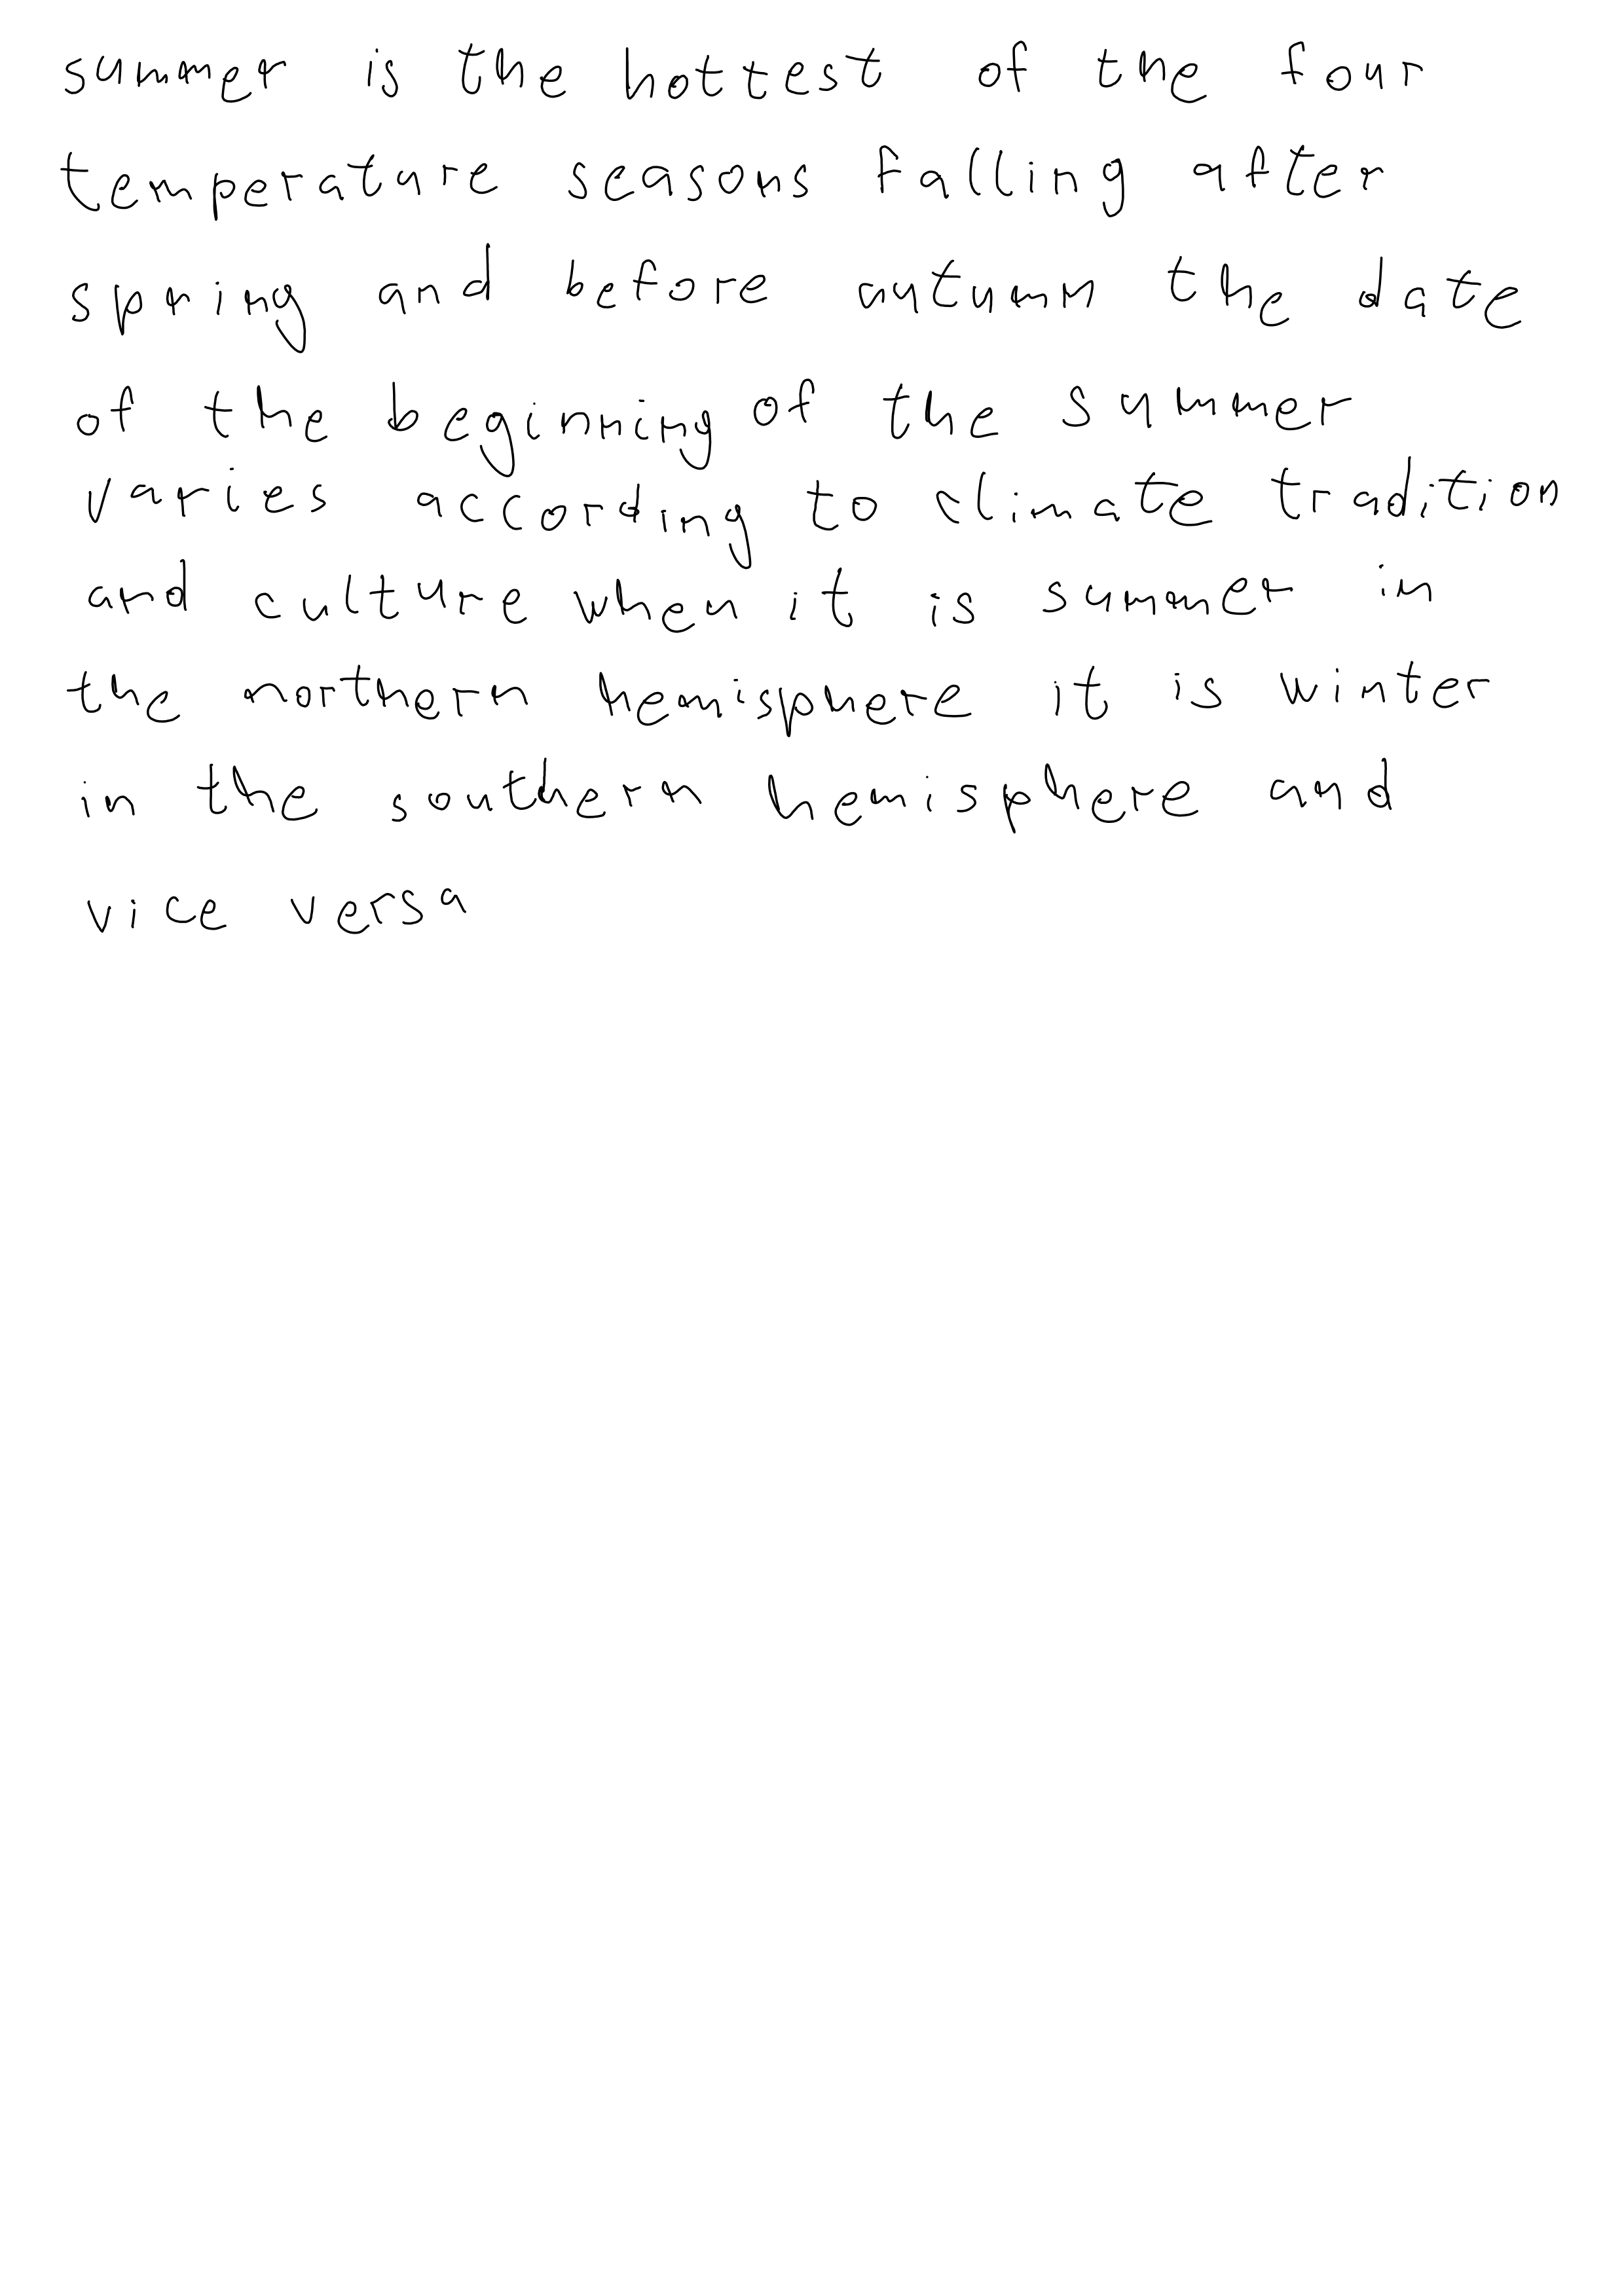 summer is the hottest of the four
temperature seasons falling after
spring and before autumn the date
of the beginning of the summer
varies according to climate tradition
and culture when it is summer in
the northern hemisphere it is winter
in the southern hemisphere and
vice versa